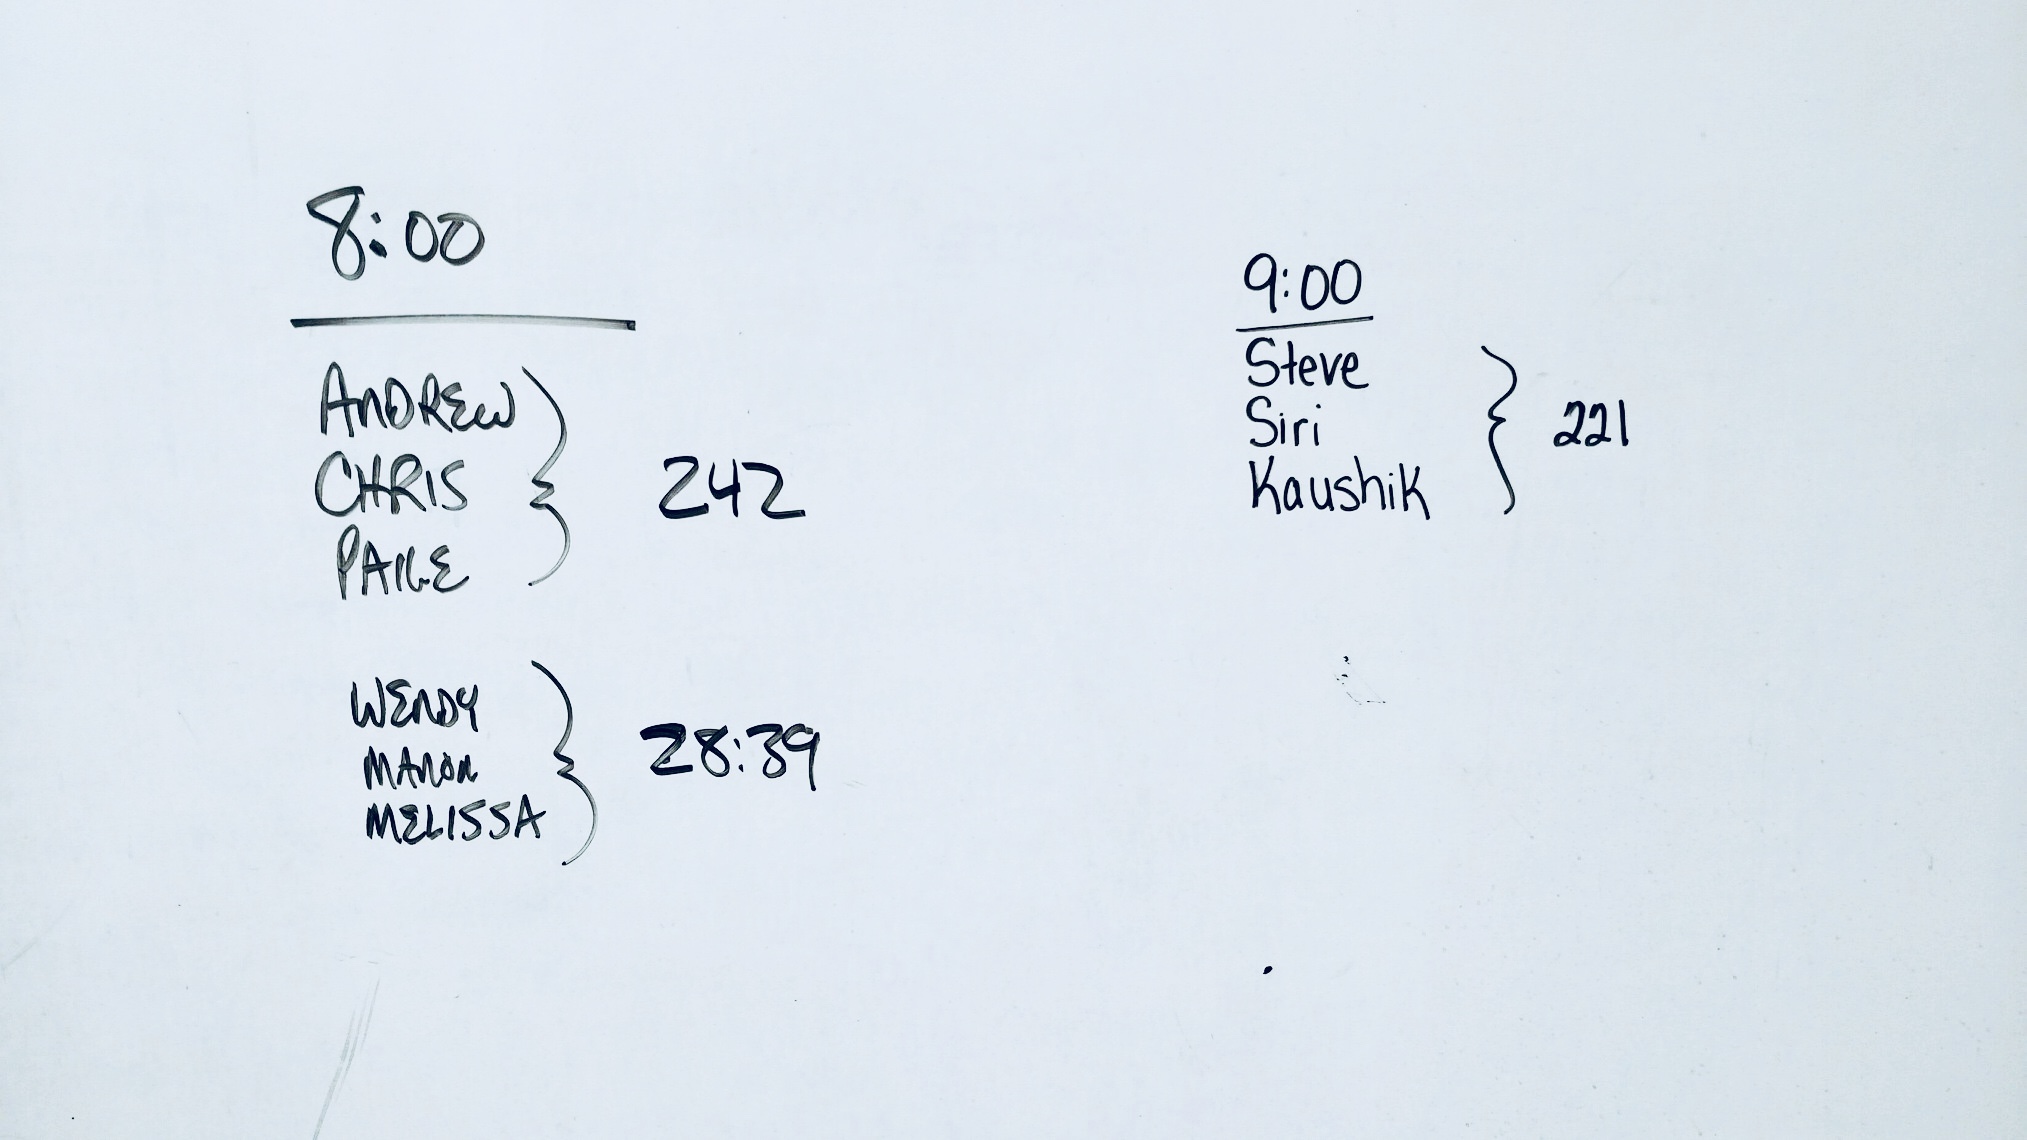 8:00
ANDREW
CHRIS
PAIGE
242
WENDY
MANON
MELISSA
28:39
9:00
Steve
Siri
Kaushik
221